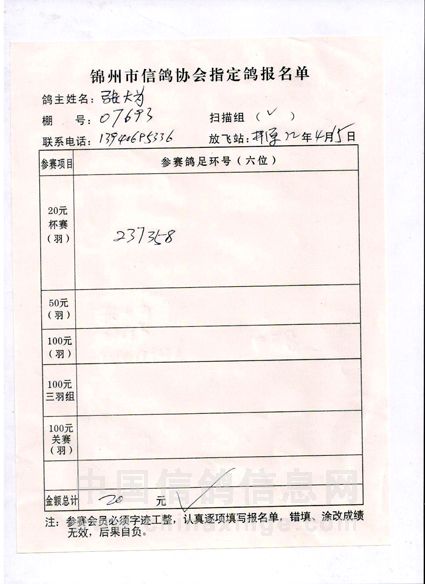 锦州市信鸽协会指定鸽报名单
鸽主姓名：张大为
棚 号：07693 扫描组（✓）
联系电话：13940695336 放飞站： 22年4月15日
参赛项目 参赛鸽足环号（六位）
20元
杯赛
（羽）
237358
50元
（羽）
100元
（羽）
100元
三羽组
100元
关赛
（羽）
金额总计 20 元 ✓
注：参赛会员必须字迹工整，认真逐项填写报名单，错填、涂改成绩
无效，后果自负。
中国信鸽信息网